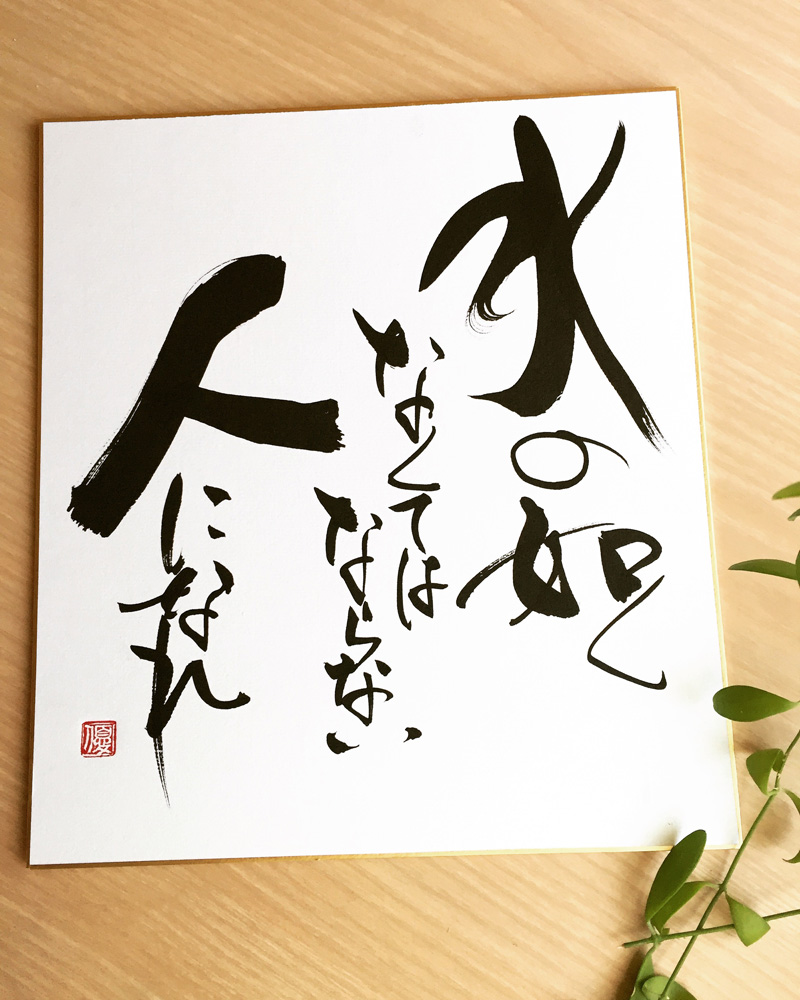 水の如く
なくては
ならない
人になれ
優